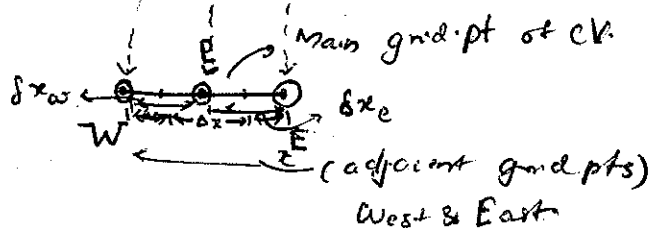 Main grid.pt of CV.
P
δxw
Δx
δxe
W
E
(adjacent grid pts)
West & East